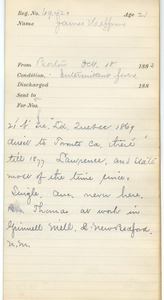 Reg. No. Age 21
Name James
From Boston Oct. 18 188
Condition. Intermittent fever
Discharged 188
Sent to
For Nos.
21 b. Ire. Ld. Quebec 1869
direct to Toronto Ca. there
till 1877. Lawrence, and
most of the time since.
Single. Ans. never here.
Thomas at work in
Grinnell Mill, New Bedford.